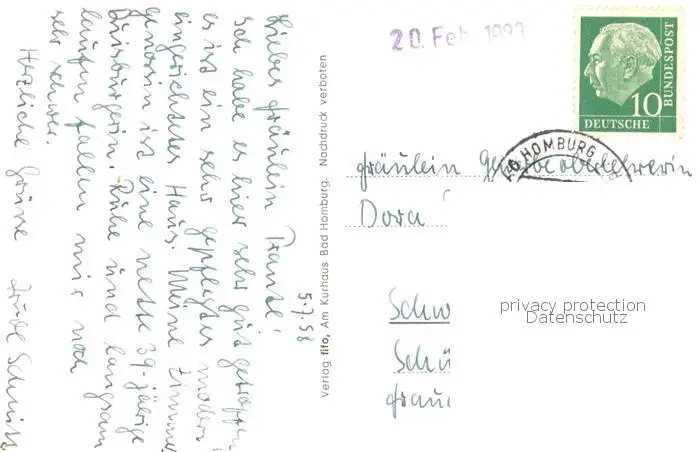 5.7.58
Liebes Fräulein Traute!
Ich habe es hier sehr gut getroffen
es ist ein sehr gepflegtes modern
eingerichtetes Haus. Meine Zimmer
genossin ist eine nette 39-jährige
Duisburgerin. Ruhe und langsam
laufen fallen mir noch
sehr schwer.
Herzliche Grüsse Schmitt
Verlag fifo, Am Kurhaus Bad Homburg. Nachdruck verboten
20. Feb. 1993
10
DEUTSCHE
BUNDESPOST
HOMBURG
Fräulein Gewerbeoberlehrerin
Dora
Schw
Schü
privacy protection
Datenschutz